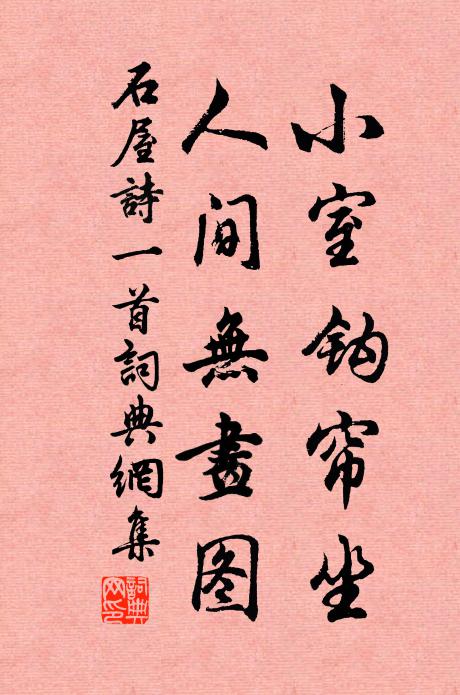 小室钩帘坐
人间無畫图
石屋詩一首詞典網集
詞典網印